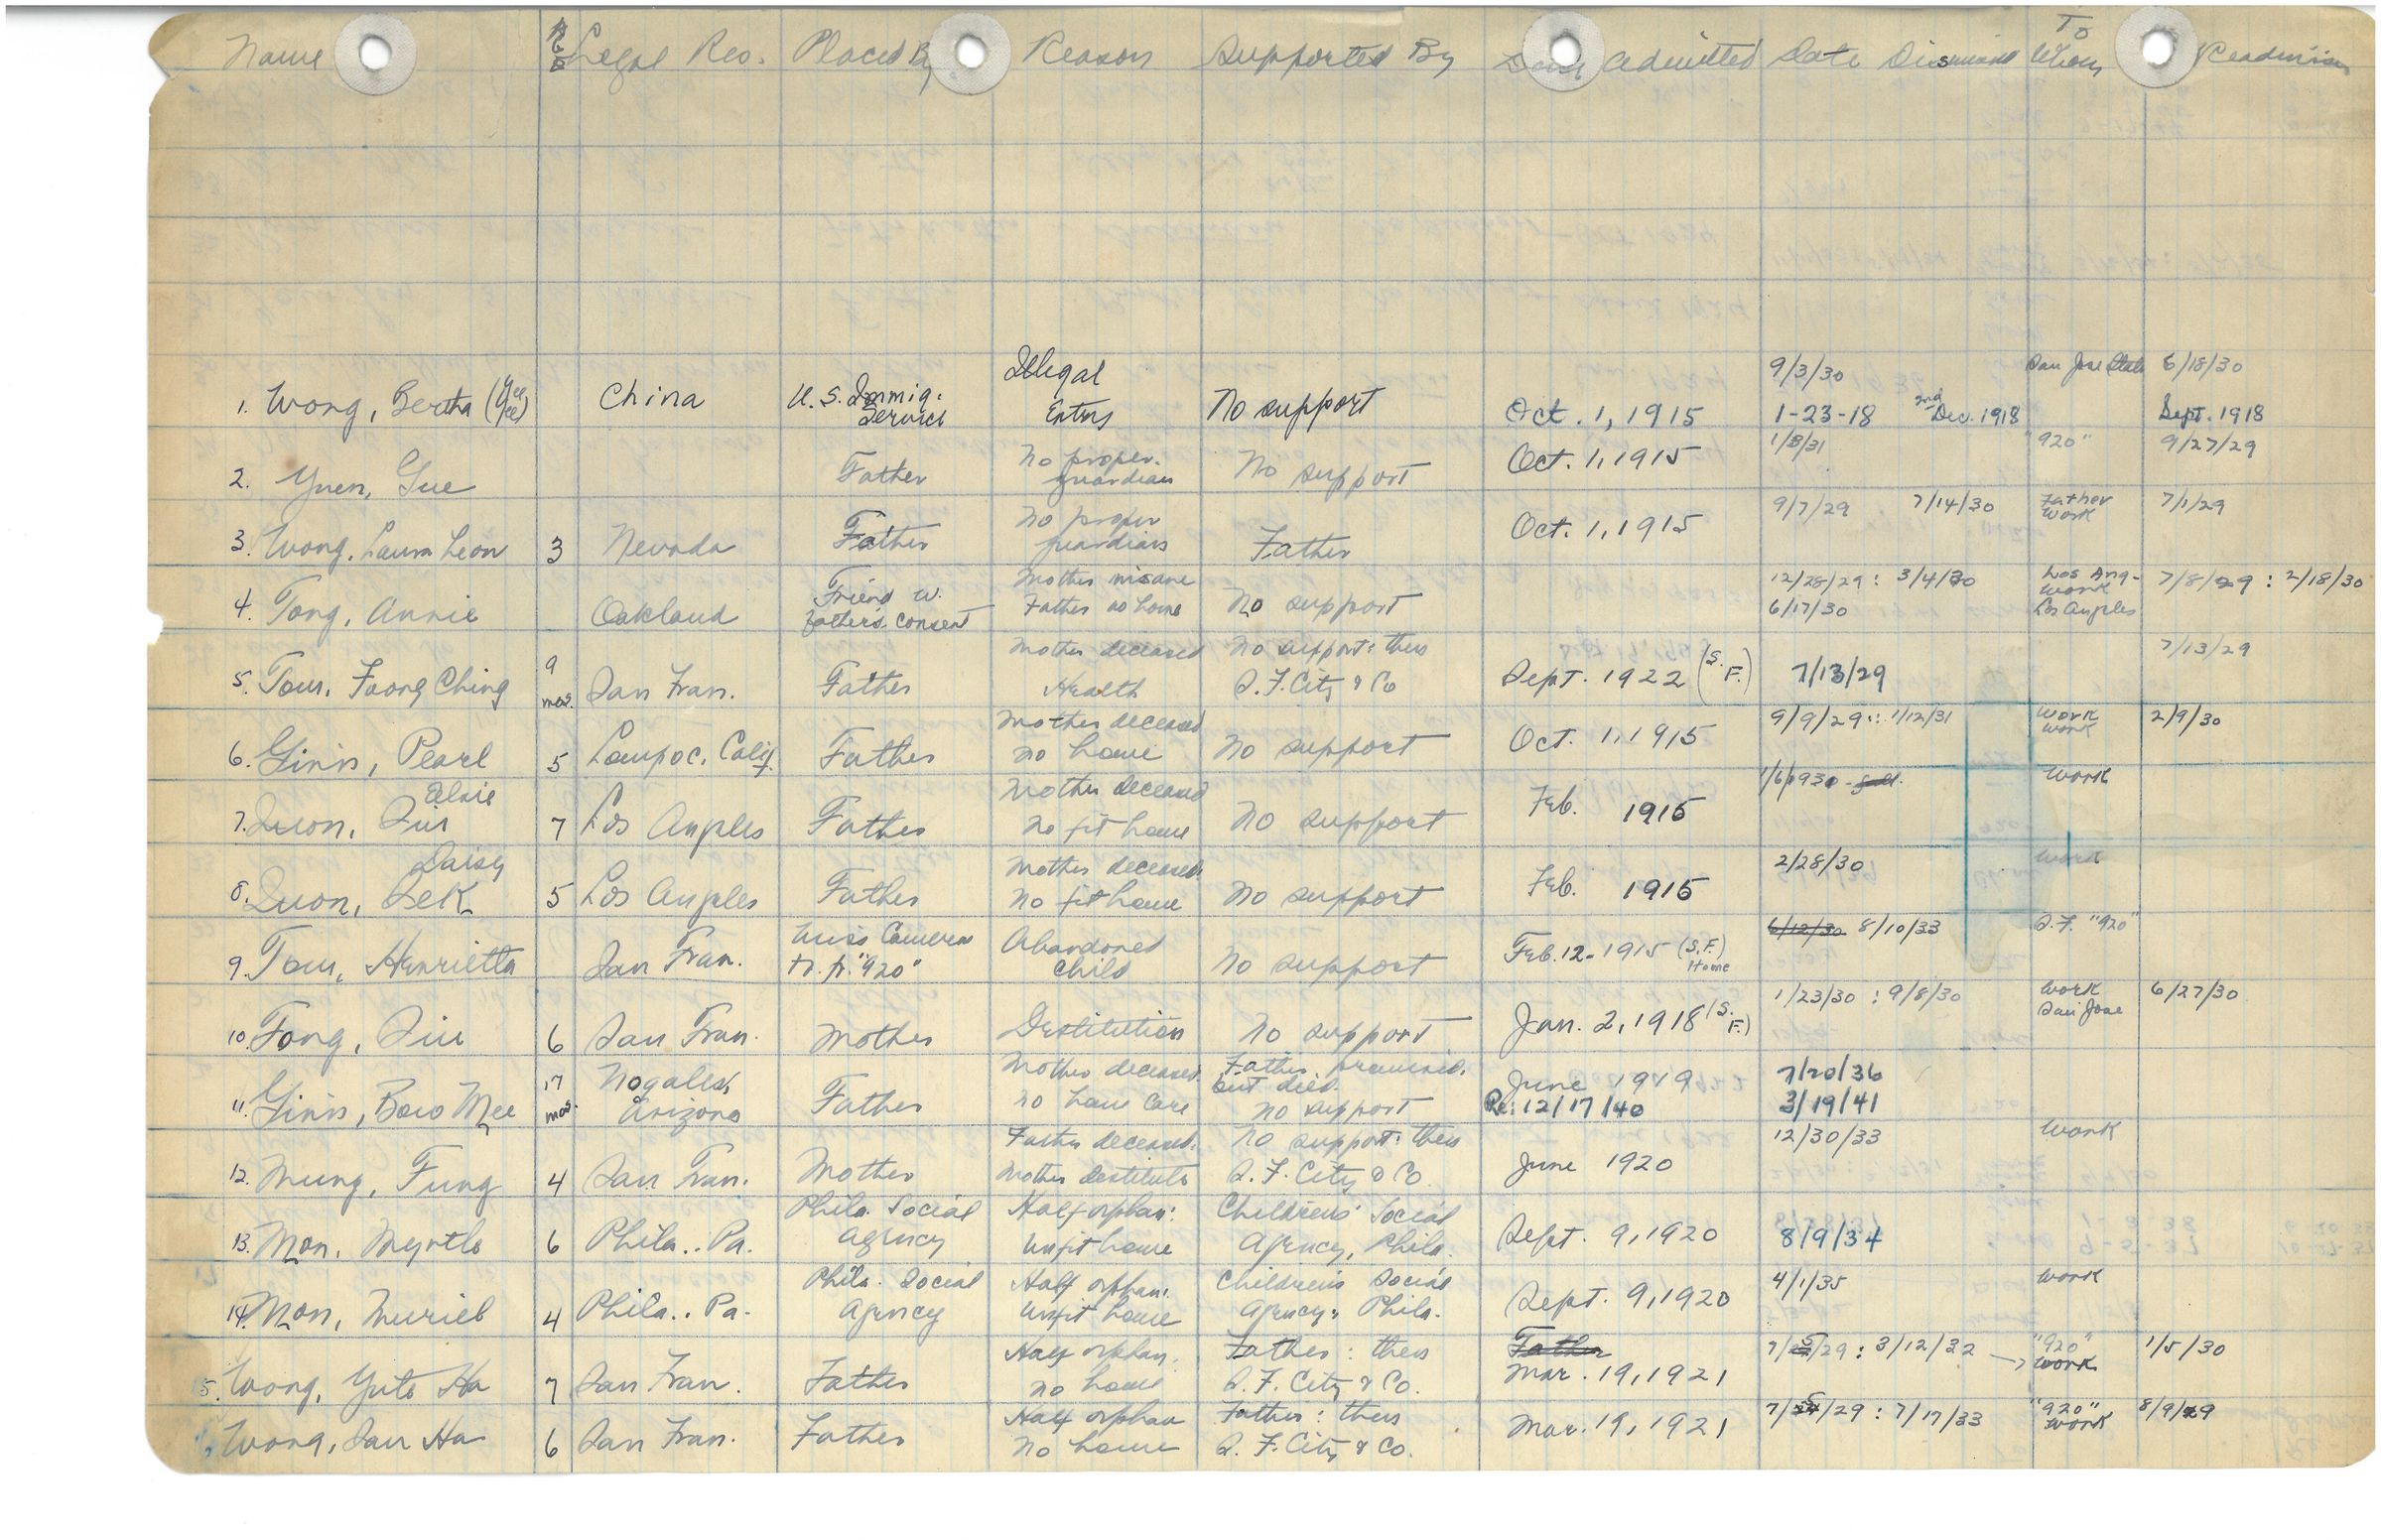 Name Age Legal Res. Placed By Reason Supported By Date admitted Date Dismissed To Whom
1. Wong, Bertha China U.S. Immig. Service Illegal Entry No support Oct. 1, 1915 9/3/30 1-23-18 2nd Dec. 1918 San Jose State 6/18/30 Sept. 1918
2. Yuen, Gue Father No proper guardian No support Oct. 1, 1915 1/8/31 "920" 9/27/29
3. Wong, Laura Leon 3 Nevada Father No proper guardians Father Oct. 1, 1915 9/7/29 7/14/30 Father Work 7/1/29
4. Tong, Annie Oakland Friend w. Father's consent Mother insane Father no home No support 12/28/29 : 3/4/30 6/17/30 Los Ang- Work Los Angeles 7/8/29 : 2/18/30
5. Tom, Foong Ching 9 mos. San Fran. Father Mother deceased Health No support: then S.F. City & Co Sept. 1922 (S.F.) 7/13/29 7/13/29
6. Pearl 5 Lompoc, Calif. Father Mother deceased no home No support Oct. 1, 1915 9/9/29 : 1/12/31 Work Work 2/9/30
7. Quon, Elsie 7 Los Angeles Father Mother deceased No fit home No support Feb. 1916 1/6/1930 Work
8. Quon, Daisy 5 Los Angeles Father Mother deceased. No fit home No support Feb. 1916 2/28/30 Work
9. Tom, Henrietta San Fran. Miss Cameron tr. fr. "920" Abandoned Child No support Feb. 12-1915 (S.F.) Home 6/12/30 8/10/33 S.F. "920"
10. Fong, 6 San Fran. Mother Destitution No support Jan. 2, 1918 (S.F.) 1/23/30 : 9/8/30 Work San Jose 6/27/30
11. Bow Mee 17 mos. Nogales, Arizona Father Mother deceased. no home care Father promised. but died. no support June 1919 Re: 12/17/40 7/20/36 3/19/41
12. Mung, Fung 4 San Fran. Mother Father deceased. Mother destitute No support: then S.F. City & Co. June 1920 12/30/33 Work
13. Mon, Myrtle 6 Phila., Pa. Phila. Social Agency Half orphan: Unfit home Children's Social Agency, Phila. Sept. 9, 1920 8/9/34
14. Mon, Muriel 4 Phila., Pa. Phila. Social Agency Half orphan. Unfit home Children's Social Agency, Phila. Sept. 9, 1920 4/1/35 Work
15. Wong, Ha 7 San Fran. Father Half orphan. no home Father : then S.F. City & Co. Father Mar. 19, 1921 7/5/29 : 3/12/32 "920" Work 1/5/30
Wong, Ha 6 San Fran. Father Half orphan No home Father : then S.F. City & Co. Mar. 19, 1921 7/5/29 : 7/17/33 "920" Work 8/9/29